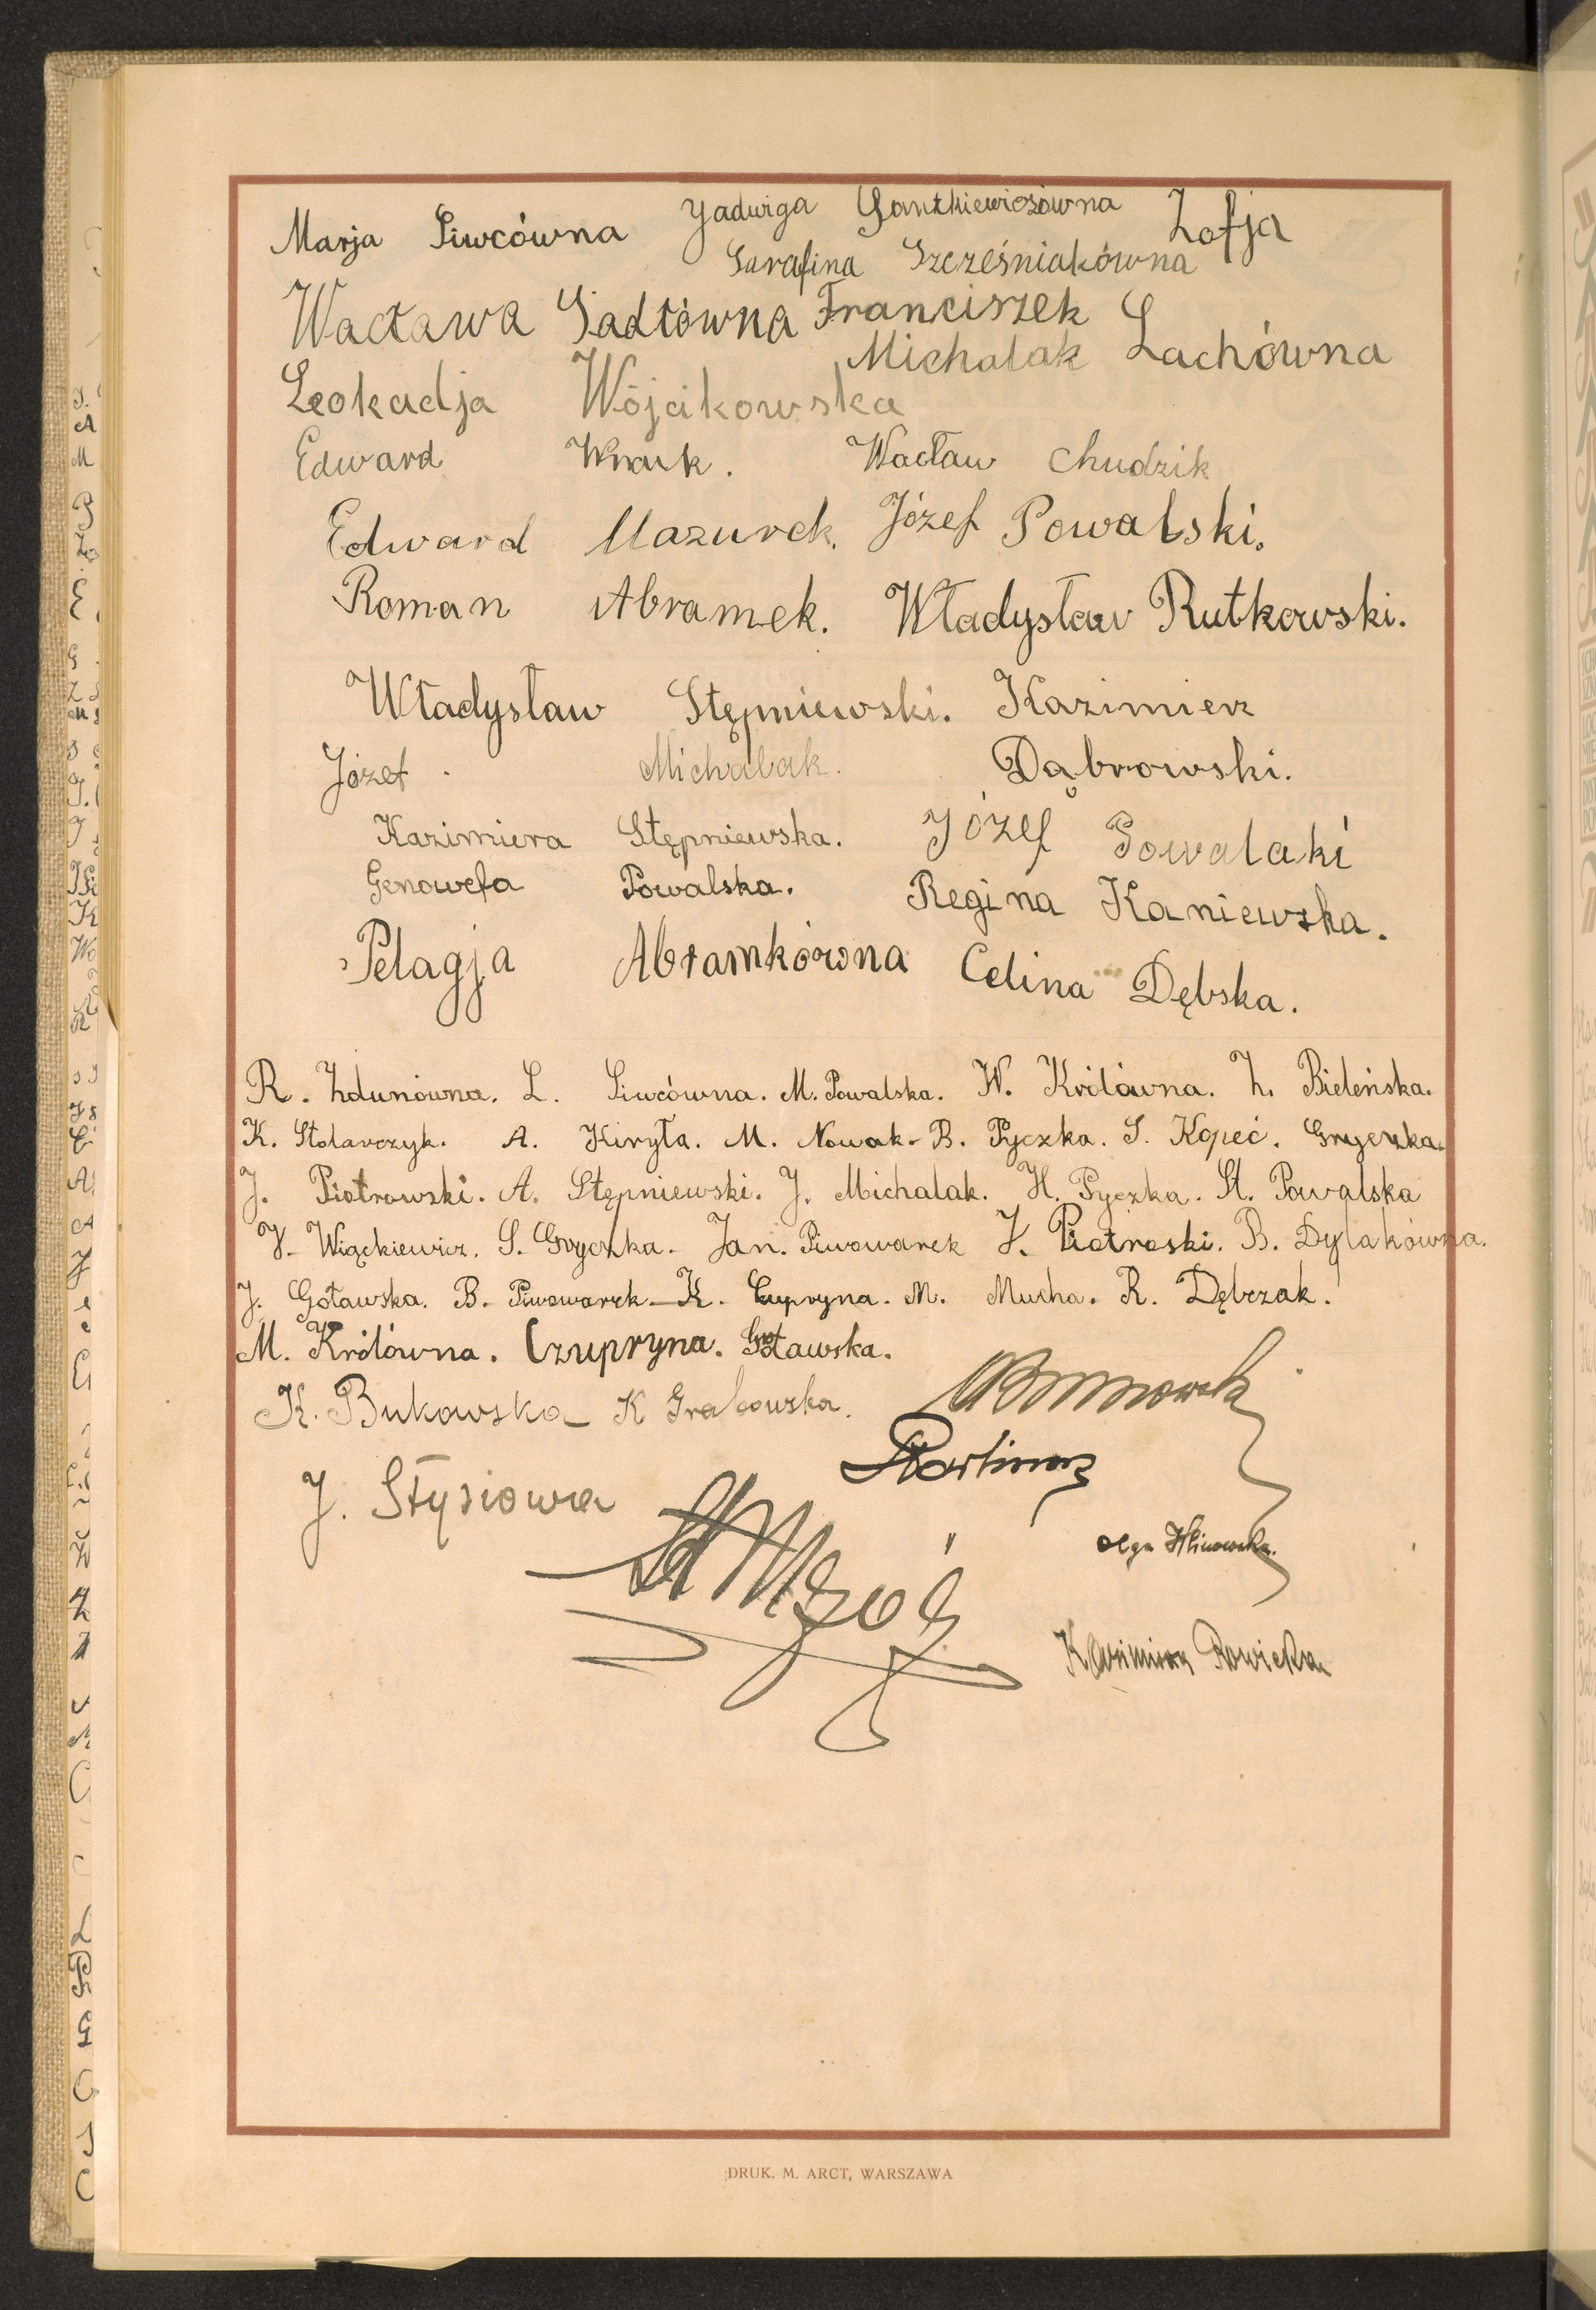 Marja Siwcówna Jadwiga Zofja
Serafina Szcześniakówna
Wacława Sadłówna Franciszek
Michalak Lachówna
Leokadja Wójcikowska
Edward Wnuk. Wacław Chudzik
Edward Mazurek. Józef Powalski.
Roman Abramek. Władysław Rutkowski.
Władysław Stępniewski. Kazimierz
Józef Michalak. Dąbrowski.
Kazimiera Stępniewska. Józef Powalski
Genowefa Powalska. Regina Kaniewska.
Pelagja Abramkówna Celina Dębska.
R. Zdunówna. L. Siwcówna. M. Powalska. W. Królówna. Z. Bieleńska.
K. Stolarczyk. A. Kiryła. M. Nowak. B. Pyczka. S. Kopeć. Gryczka.
J. Piotrowski. A. Stępniewski. J. Michalak. H. Pyczka. St. Powalska
J. Więckiewicz. S. Gryczka. Jan. Piwowarek J. Piotroski. B. Dylakówna.
J. Goławska. B. Piwowarek K. Cupryna. M. Mucha. R. Dębczak.
M. Królówna. Czupryna. Goławska.
K. Bukowska K Grabowska.
J. Stysiowa
Olga
Kazimiera Rowicka
DRUK. M. ARCT, WARSZAWA